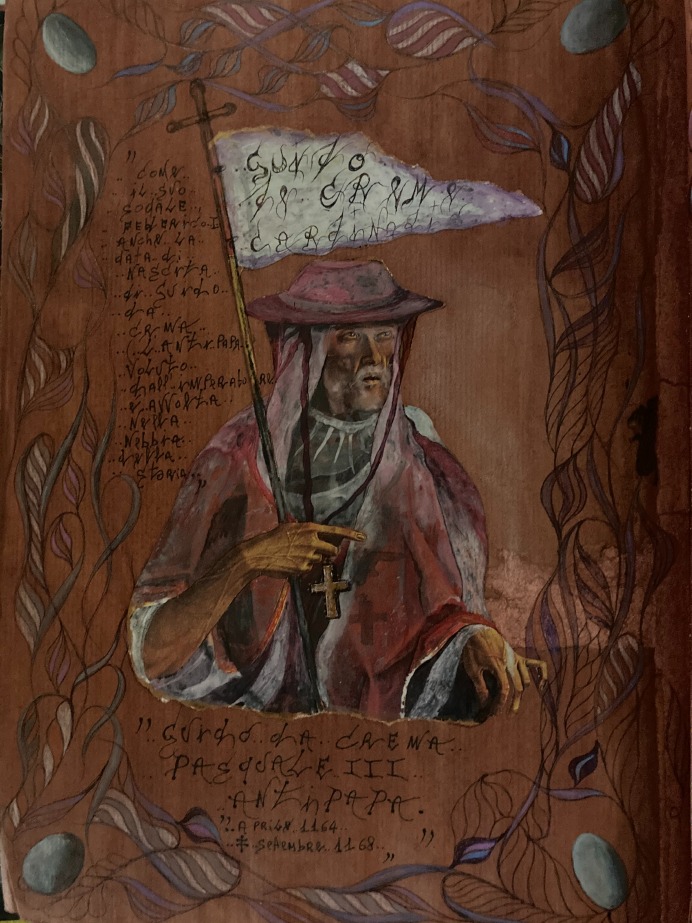 GUIDO
DA CREMA
CARDINALE
"
COME
IL SUO
SODALE
FEDERICO I
ANCHE LA
data di
NASCITA
di GUIDO
DA
CREMA
L'ANTIPAPA
VOLUTO
dall'IMPERATORE
È AVVOLTA
NELLA
NEBBIA
della
STORIA
"
"GUIDO DA CREMA
PASQUALE III
ANTIPAPA.
APRILE 1164
SETTEMBRE 1168